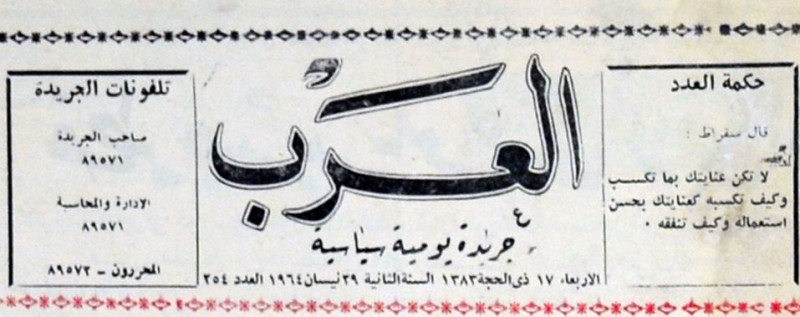 حكمة العدد
قال سقراط :
لا تكن عنايتك بما تكسب
وكيف تكسبه كعنايتك بحسن
استعماله وكيف تنفقه .
العرب
جريدة يومية سياسية
الاربعاء ١٧ ذي الحجة ١٣٨٣ السنة الثانية ٢٩ نيسان ١٩٦٤ العدد ٢٥٤
تلفونات الجريدة
صاحب الجريدة
٨٩٥٧١
الادارة والمحاسبة
٨٩٥٧١
المحررون - ٨٩٥٧٢